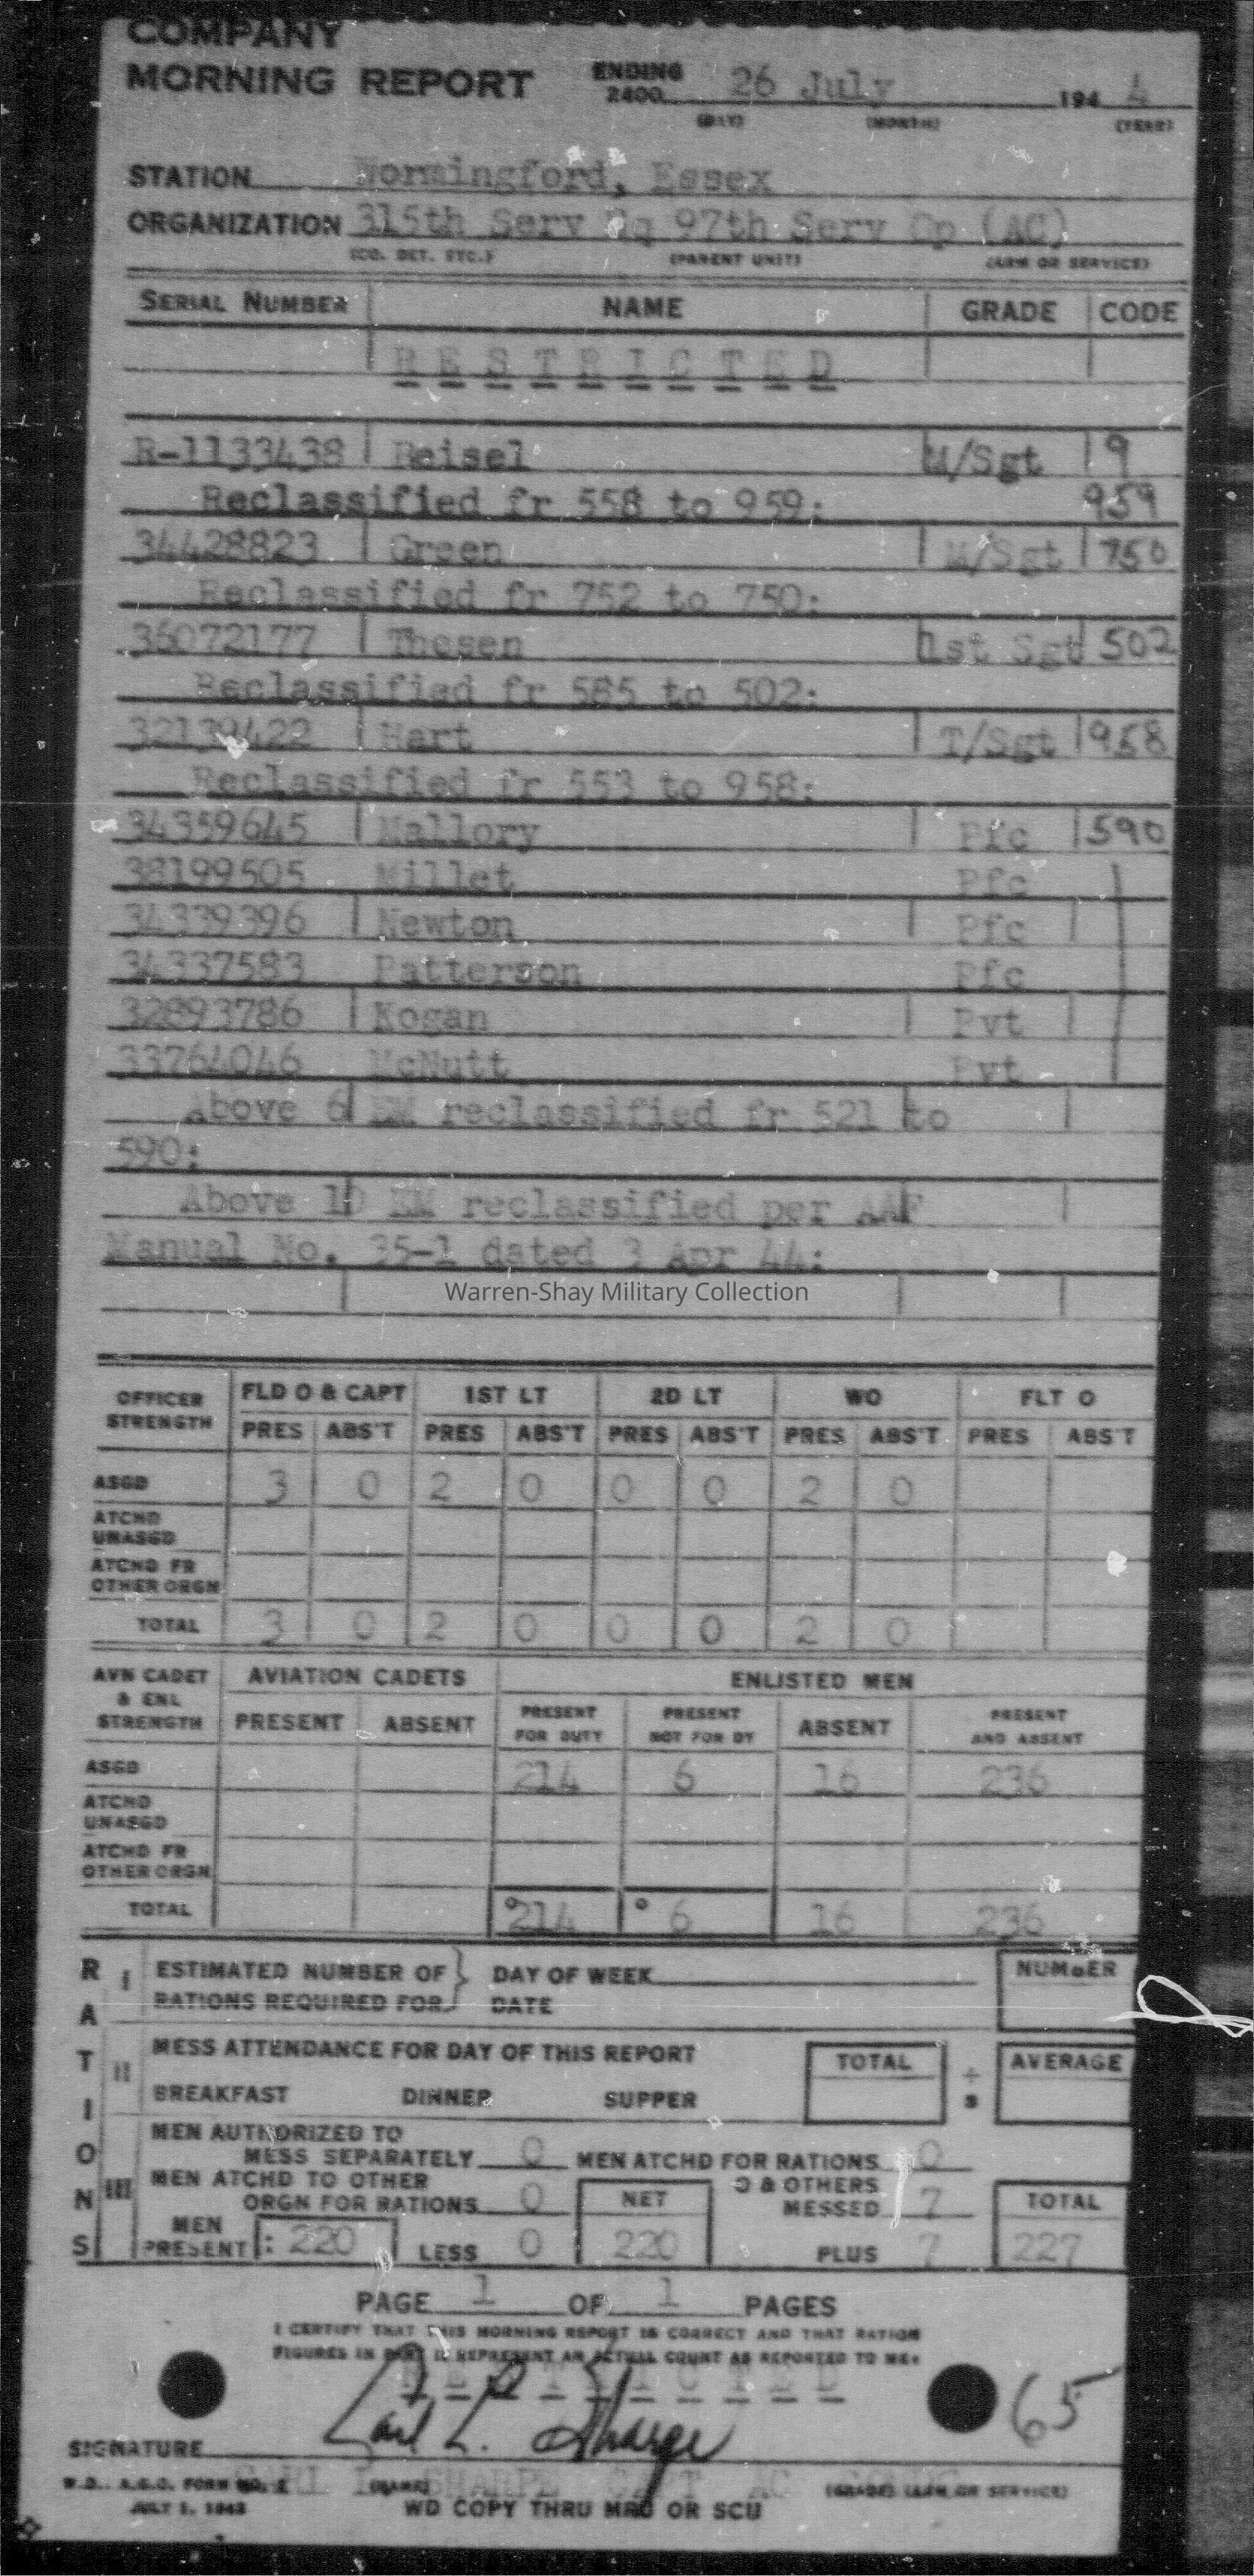 COMPANY
MORNING REPORT ENDING 2400 26 July 194 4
(DAY) (MONTH) (YEAR)
STATION Wormingford, Essex
ORGANIZATION 315th Serv Sq 97th Serv Gp (AC)
(CO. DET. ETC.) (PARENT UNIT) (ARM OR SERVICE)
SERIAL NUMBER NAME GRADE CODE
R E S T R I C T E D
R-1133438 Beisel M/Sgt 9
Reclassified fr 558 to 959: 959
34428823 Green M/Sgt 750
Reclassified fr 752 to 750:
36072177 Thesen 1st Sgt 502
Reclassified fr 585 to 502:
32139422 Hart T/Sgt 958
Reclassified fr 553 to 958:
34359645 Mallory Pfc 590
38199505 Millet Pfc
34339396 Newton Pfc
34337583 Patterson Pfc
32893786 Kogan Pvt
33764046 McNutt Pvt
Above 6 EM reclassified fr 521 to
590:
Above 10 EM reclassified per AAF
Manual No. 35-1 dated 3 Apr 44:
Warren-Shay Military Collection
OFFICER STRENGTH FLD O & CAPT 1ST LT 2D LT WO FLT O
PRES ABS'T PRES ABS'T PRES ABS'T PRES ABS'T PRES ABS'T
ASGD 3 0 2 0 0 0 2 0
ATCHD UNASGD
ATCHD FR OTHER ORGN
TOTAL 3 0 2 0 0 0 2 0
AVN CADET & ENL STRENGTH AVIATION CADETS ENLISTED MEN
PRESENT ABSENT PRESENT FOR DUTY PRESENT NOT FOR DY ABSENT PRESENT AND ABSENT
ASGD 214 6 16 236
ATCHD UNASGD
ATCHD FR OTHER ORGN
TOTAL 214 6 16 236
RATIONS
I ESTIMATED NUMBER OF } DAY OF WEEK NUMBER
RATIONS REQUIRED FOR DATE
II MESS ATTENDANCE FOR DAY OF THIS REPORT TOTAL ÷ 3 AVERAGE
BREAKFAST DINNER SUPPER
MEN AUTHORIZED TO
MESS SEPARATELY 0 MEN ATCHD FOR RATIONS 0
III MEN ATCHD TO OTHER O & OTHERS
ORGN FOR RATIONS 0 NET MESSED 7 TOTAL
MEN PRESENT : 220 LESS 0 220 PLUS 7 227
PAGE 1 OF 1 PAGES
I CERTIFY THAT THIS MORNING REPORT IS CORRECT AND THAT RATION
FIGURES IN PART II REPRESENT AN ACTUAL COUNT AS REPORTED TO ME:
R E S T R I C T E D
65
SIGNATURE Carl L. Sharpe
CARL L SHARPE CAPT AC
W.D., A.G.O. FORM NO. 1 (NAME) (GRADE) (ARM OR SERVICE)
JULY 1, 1943 WD COPY THRU MRU OR SCU